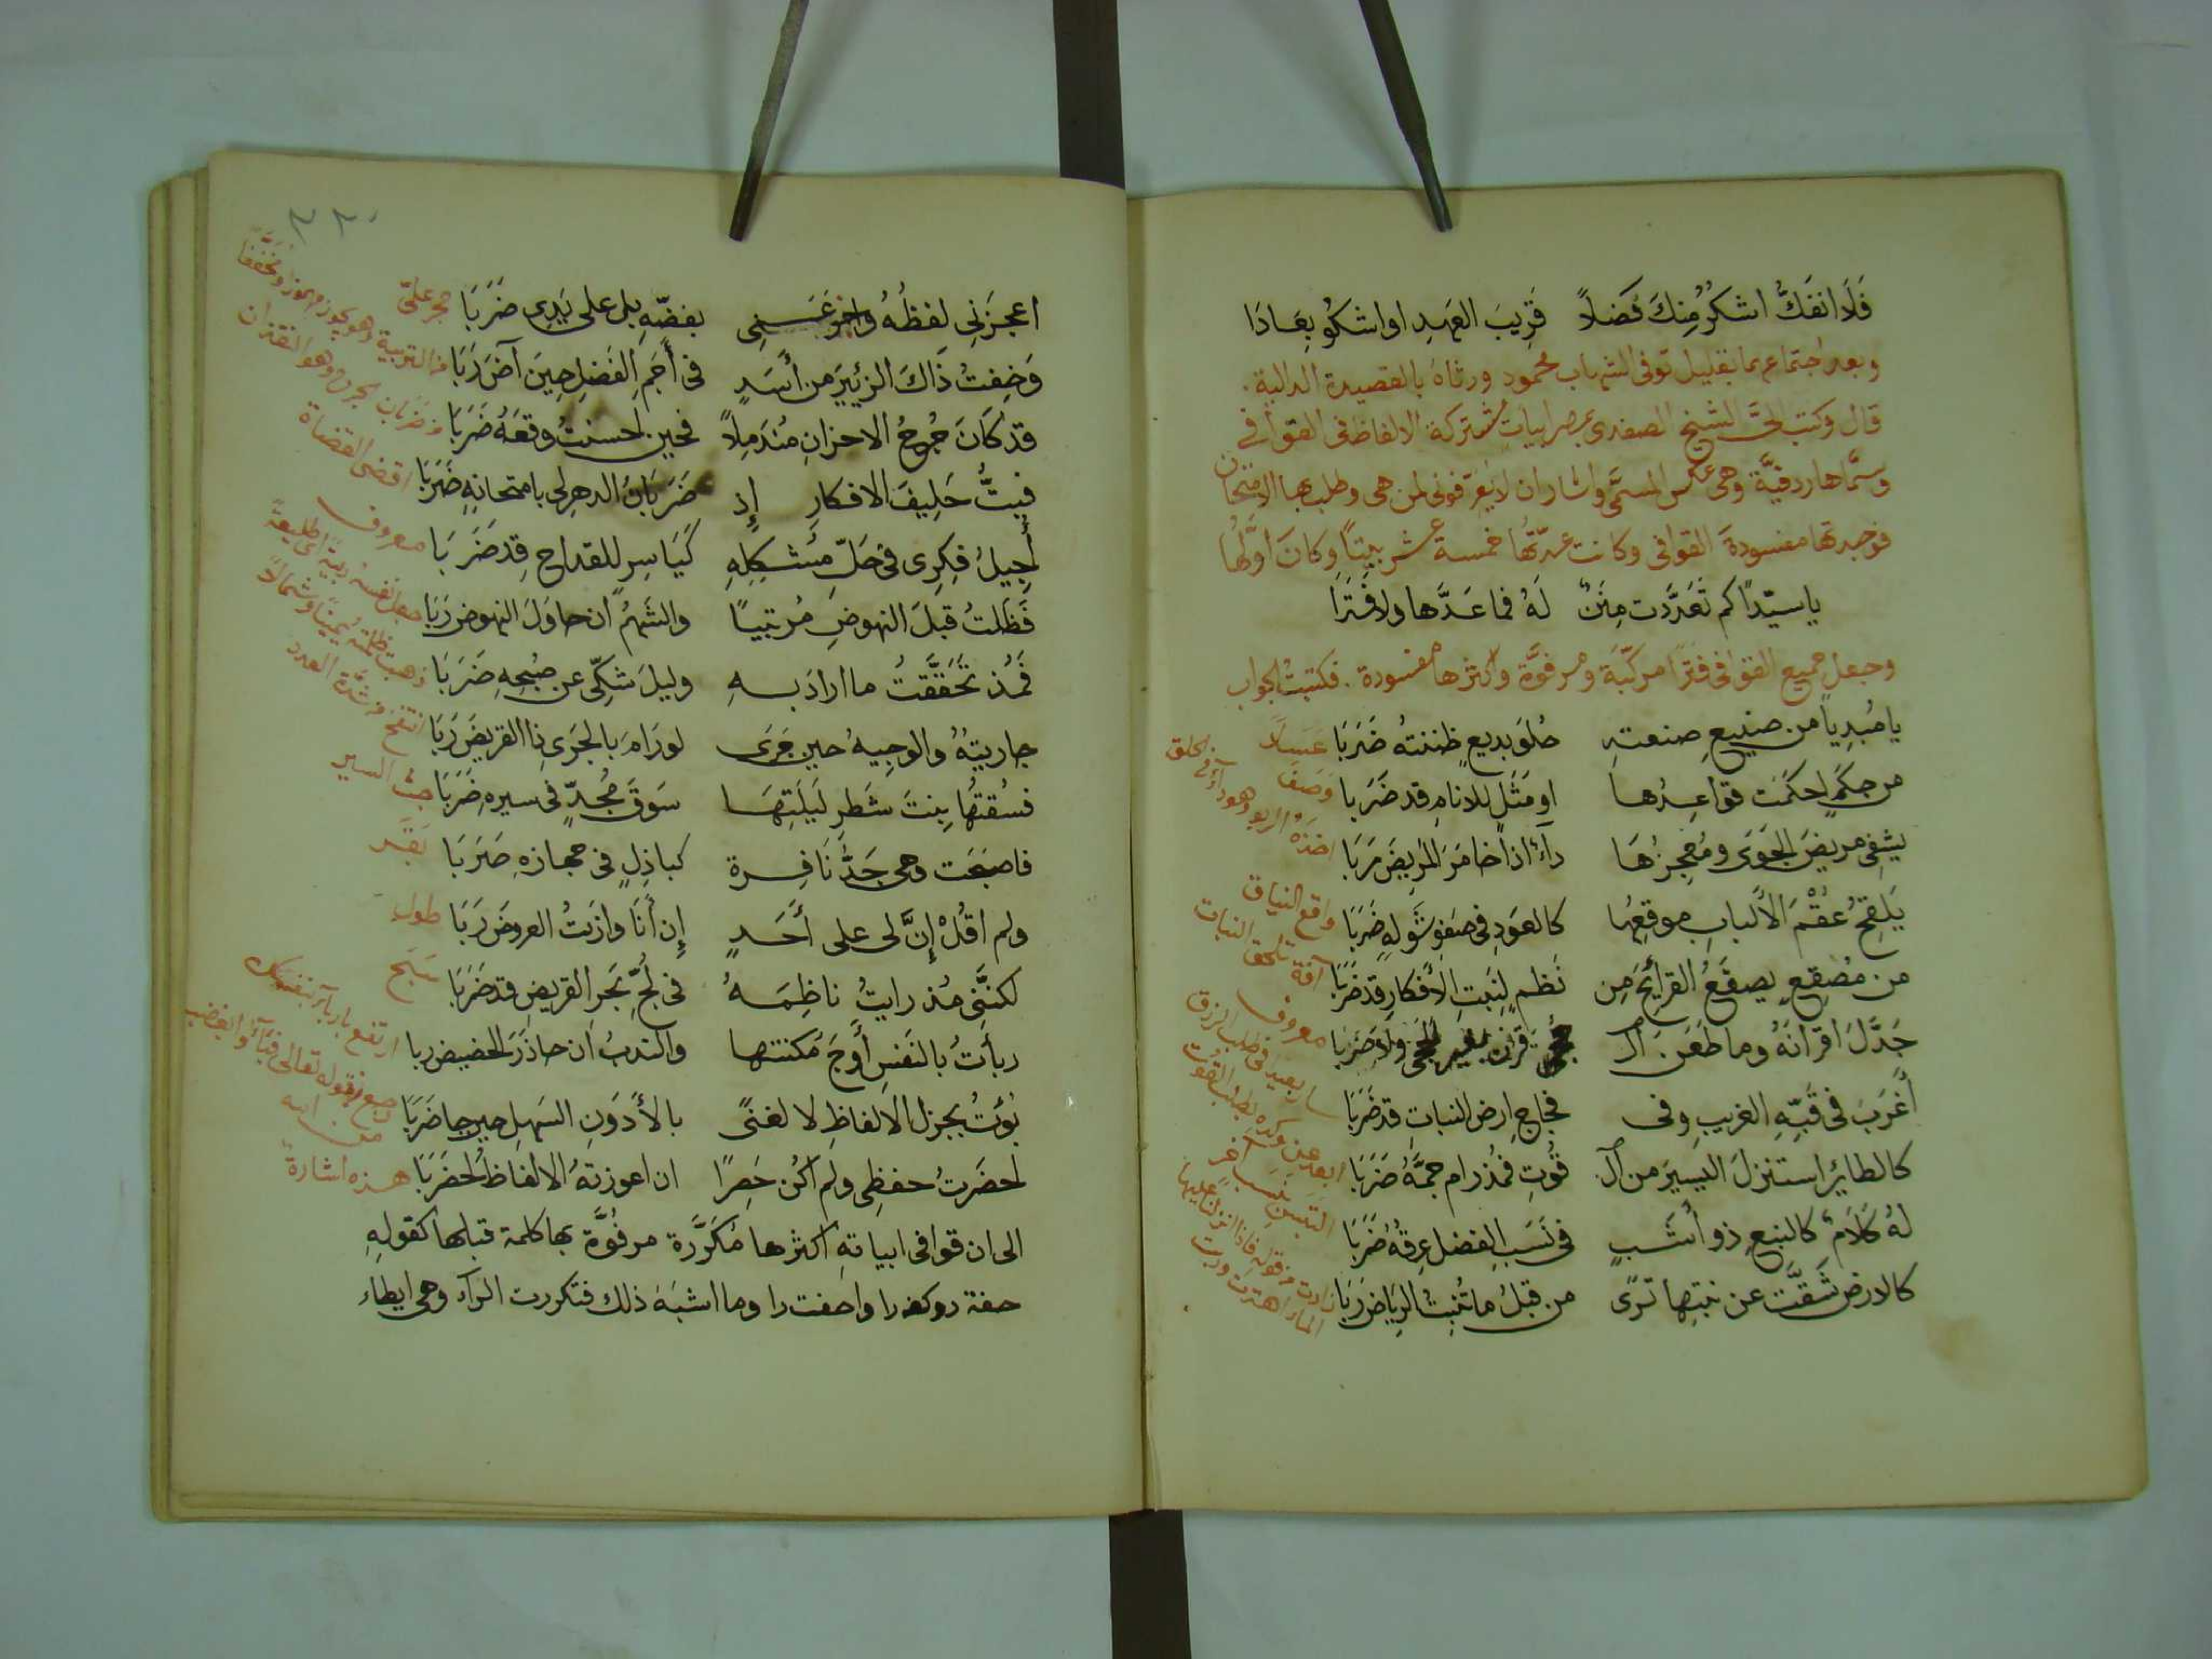 فَلَا انفَكُّ اشكُرُ مِنكَ فَضلاً قَرِيبَ العَهدِ او اشكُو بِعَادَا
وبعد اجتماعهما بقليل توفى الشهاب محمود ورثاه بالقصيدة الدالية.
قال وكتب الىَّ الشيخ الصفدى بمصر ابيات مشتركة الالفاظ فى القوافى
وسمَّاها ردفيَّة وهى عكس المسمَّى واشار ان لا يعرفونى لمن هى وطلب بها الامتحان
فوجدتها مفسودة القوافى وكانت عدّتها خمسة عشر بيتاً وكان اوَّلُها
يا سيّداً كم تَعَدَّدت مِنَنٌ لَهُ فما عَدَّها ولا فَتَرَا
وجعل جميع القوافى فترا مركّبَة ومرفوَّة واكثرها مفسودة. فكتبت الجواب
يا مُبدِياً من صنيعِ صنعتهِ حُلوَ بديعٍ ظننتهُ ضَرَبَا عَسَلاً
من حِكَمٍ احكمَت قواعِدُها او مَثَلٍ للانامِ قد ضَرَبا وَصَفَ
يشفِى مريضَ الجَوَى ومُعجِزُهَا داءٌ اذا خامَرَ المريضَ رَبَا اخذهُ الربو وهو داء فى الحلق
يَلقِحُ عُقْمَ الأَلبابِ موقعِهُا كالعَودِ فى صَفوِ شَولهِ ضَرَبَا واقع النياق
من مُصقِعٍ يصقَعُ القرائِحَ مِن نَظمٍ لِنَبتِ الأفكارِ قد ضَرَبَا آفة تلحق النبات
جَدَّلَ اقرانَهُ وما طَعَن آل قرنَ بغير الحجى ولا ضَرَبا معروف
أغرَبَ فى فَنِّهِ الغريبِ وفى فجاجِ ارض النباتِ قد ضَرَبَا سار بعيد فى طلب الرزق
كالطايرُ استنزلَ اليسيرَ من آل قُوتِ فمُذ رام جمَّهُ ضَرَبَا ابعد عن وكره بطلب القوت
لهُ كَلَامٌ كالنبعِ ذو أشَبٍ فى نَسَبِ الفضلِ عِرقُهُ ضَرَبَا التبس بنسب آخر
كالارض شَقَّت عن نبتِها تَرَى من قبلُ ما تُنبِتُ الرياض رَبَا زادت من قوله فاذا انزلنا عليها الماء اهتزت وربت
٢٣٠
اعجزَنِى لفظُهُ وافرغنِى بغضّهِ بل على يَدِى ضَرَبَا حجر علىّ
وَخِفتُ ذَاكَ الزئيرَ من أسَدٍ فى أجَمِ الفَضلِ حِينَ آضَ رَبَا من التربية وهو يجوز مهموزا ومخففا
قد كَانَ جُرحُ الاحزانِ مُندَمِلاً فحين احسنتُ وقعَهُ ضَرَبَا من ضربان الجرح وهو النقزان
فبِتُّ حَلِيفَ الافكارِ إذ ضَرَبَانُ الدهرِ لى بامتحانهِ ضَرَبَا اقضى القضاة
أُجِيلُ فِكرِى فى حَلِّ مُشكِلِهِ كيَاسِرٍ للقداح قد ضَرَبَا معروف
فَظَلتُ قبلَ النهوضِ مُرتبيًا والشَهمُ ان حاوَلَ النهوض رَبَا جعل نفسه ربية اى طليعةً
فَمُذ تَحَقَّقتُ ما ارادَ بهِ وليلَ شَكِّى عن صُبحِهِ ضَرَبَا ذهبت ظلمته يمينا وشمالاً
جاريتهُ والوجيهُ حينِ جَرَى لو رَامَ بالجَرىِ ذا القريضَ رَبَا انتفخ من شدّة العدد
فسُقتُها بِنتَ شَطرِ لَيلَتِهَا سَوقَ مُجدٍّ فى سيرهِ ضَرَبَا حثّ السير
فاصبَحَت وهى جَدُّ نَافِرة كباذِلٍ فى حجازهِ ضَرَبَا بقر
ولم اقُلْ إنَّ لى على أحَدٍ إن أنَا وازَنتُ العروضَ رَبَا طول
لكنَّنِى مُذ رايتُ ناظِمَهُ فى لُجِّ بَحرِ القريضِ قد ضَرَبَا سَبَح
ربأتُ بالنَفسِ أوجَ مُكنتها والندبُ ان حاذَرَ الحضيض ربا
بُؤتُ بجزل الالفاظِ لا لغنًى بالأدوَنِ السَهلِ حين جا ضَرَبَا
احضَرتُ حفظِى ولم اكُن حَصِرًا ان اعوزتهُ الالفاظُ احضَرَبَا هذه اشارة
الى ان قوافى ابياتهِ اكثرها مُكَرَّرة مرفوَّة بها كلمة قبلها كقولهِ
حفتَ را وما اشبَهَ ذلك فتكررت الراء وهى ايطاء